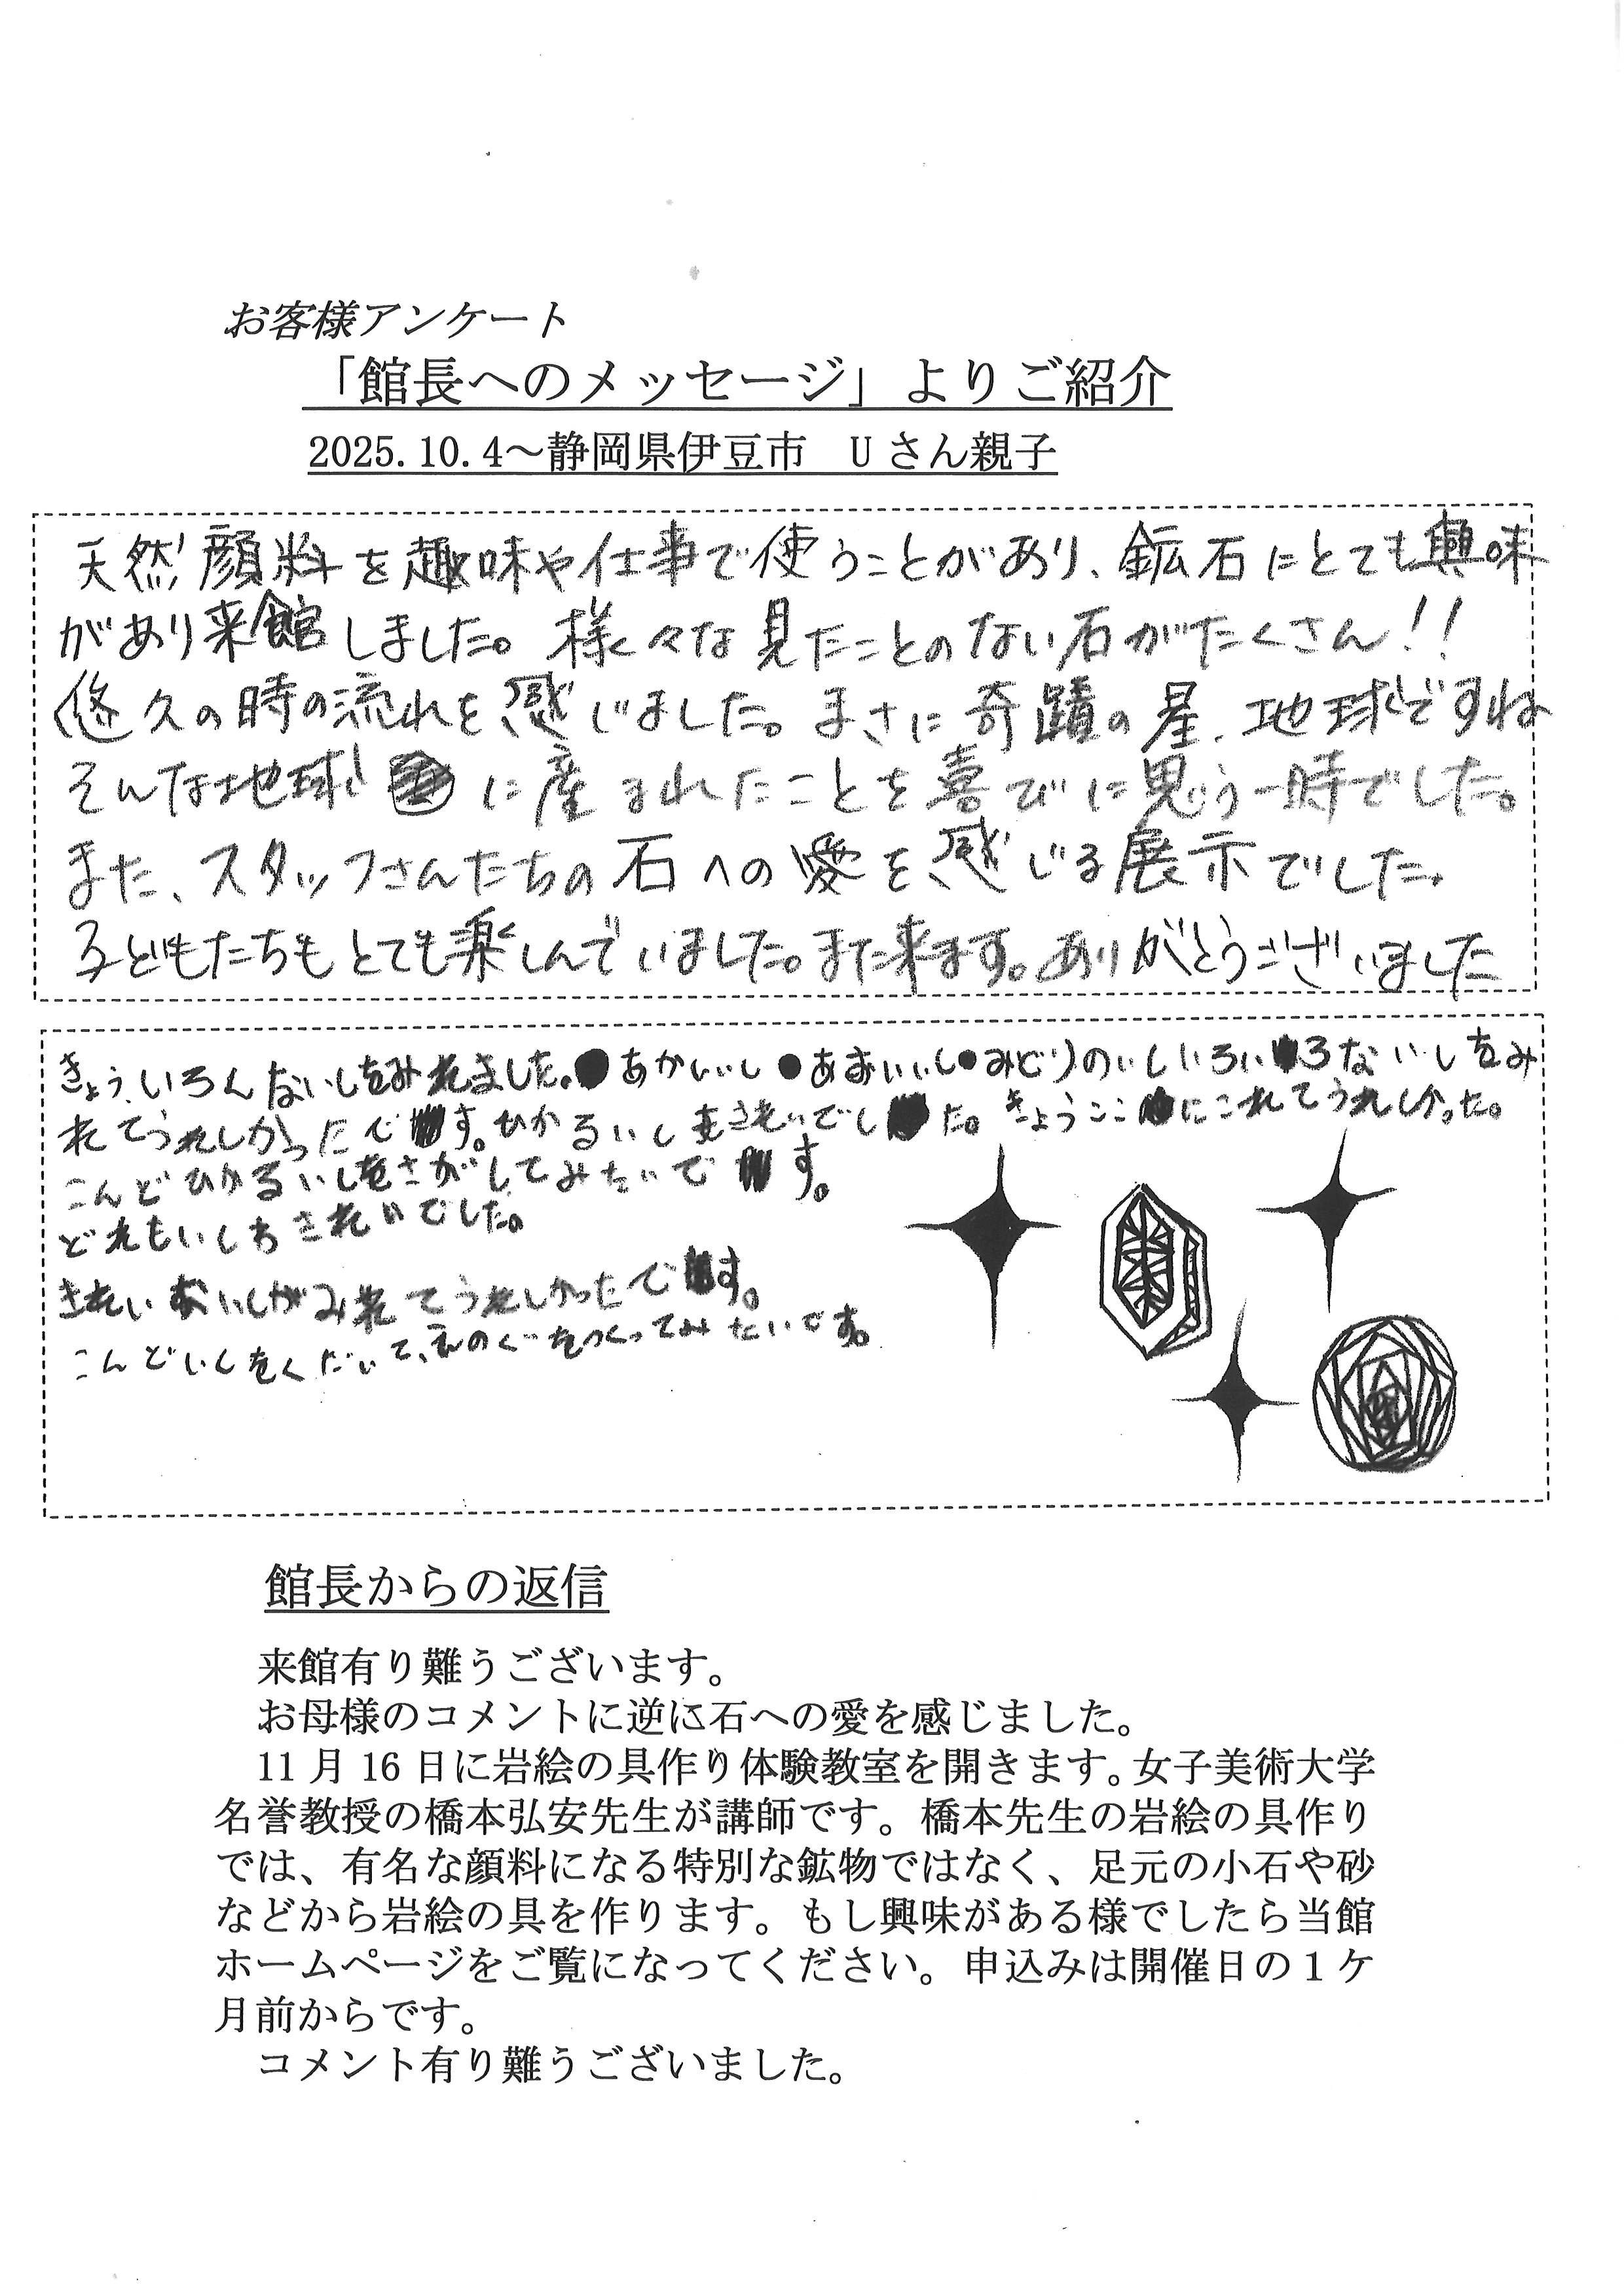 お客様アンケート
「館長へのメッセージ」よりご紹介
2025.10.4～静岡県伊豆市　Uさん親子
天然顔料を趣味や仕事で使うことがあり、鉱石にとても興味
があり来館しました。様々な見たことのない石がたくさん!!
悠久の時の流れを感じました。まさに奇蹟の星、地球ですね
そんな地球に産まれたことを喜びに思う一時でした。
また、スタッフさんたちの石への愛を感じる展示でした。
子どもたちもとても楽しんでいました。また来ます。ありがとうございました
きょう、いろんないしをみれました。●あかいいし●あおいいし●みどりのいしいろいろないしをみ
れてうれしかったです。ひかるいしもきれいでした。きょうここにこれてうれしかった。
こんどひかるいしをさがしてみたいです。
どれもいしもきれいでした。
きれいないしがみれてうれしかったです。
こんどいしをくだいて、えのぐをつくってみたいです。
館長からの返信
来館有り難うございます。
お母様のコメントに逆に石への愛を感じました。
11月16日に岩絵の具作り体験教室を開きます。女子美術大学
名誉教授の橋本弘安先生が講師です。橋本先生の岩絵の具作り
では、有名な顔料になる特別な鉱物ではなく、足元の小石や砂
などから岩絵の具を作ります。もし興味がある様でしたら当館
ホームページをご覧になってください。申込みは開催日の１ケ
月前からです。
コメント有り難うございました。